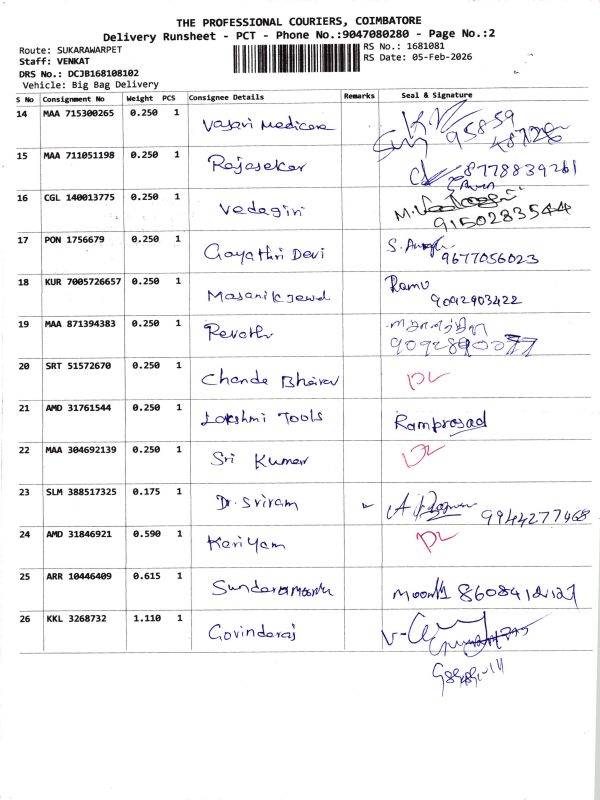 THE PROFESSIONAL COURIERS, COIMBATORE
Delivery Runsheet - PCT - Phone No.:9047080280 - Page No.:2
Route: SUKARAWARPET
RS No.: 1681081
Staff: VENKAT
RS Date: 05-Feb-2026
DRS No.: DCJB168108102
Vehicle: Big Bag Delivery
S No Consignment No Weight PCS Consignee Details Remarks Seal & Signature
14 MAA 715300265 0.250 1 Vasavi Medicare 95859
15 MAA 711051198 0.250 1 Rajasekar 8778839261
16 CGL 140013775 0.250 1 Vedagiri 9150283544
17 PON 1756679 0.250 1 Gayathri Devi 9677056023
18 KUR 7005726657 0.250 1 Ramu
9092903422
19 MAA 871394383 0.250 1 Revathi
20 SRT 51572670 0.250 1 DL
21 AMD 31761544 0.250 1 Lakshmi Tools Ramprasad
22 MAA 304692139 0.250 1 Sri Kumar DL
23 SLM 388517325 0.175 1 Dr. Sriram 9944277468
24 AMD 31846921 0.590 1 DL
25 ARR 10446409 0.615 1
26 KKL 3268732 1.110 1 Govindaraj